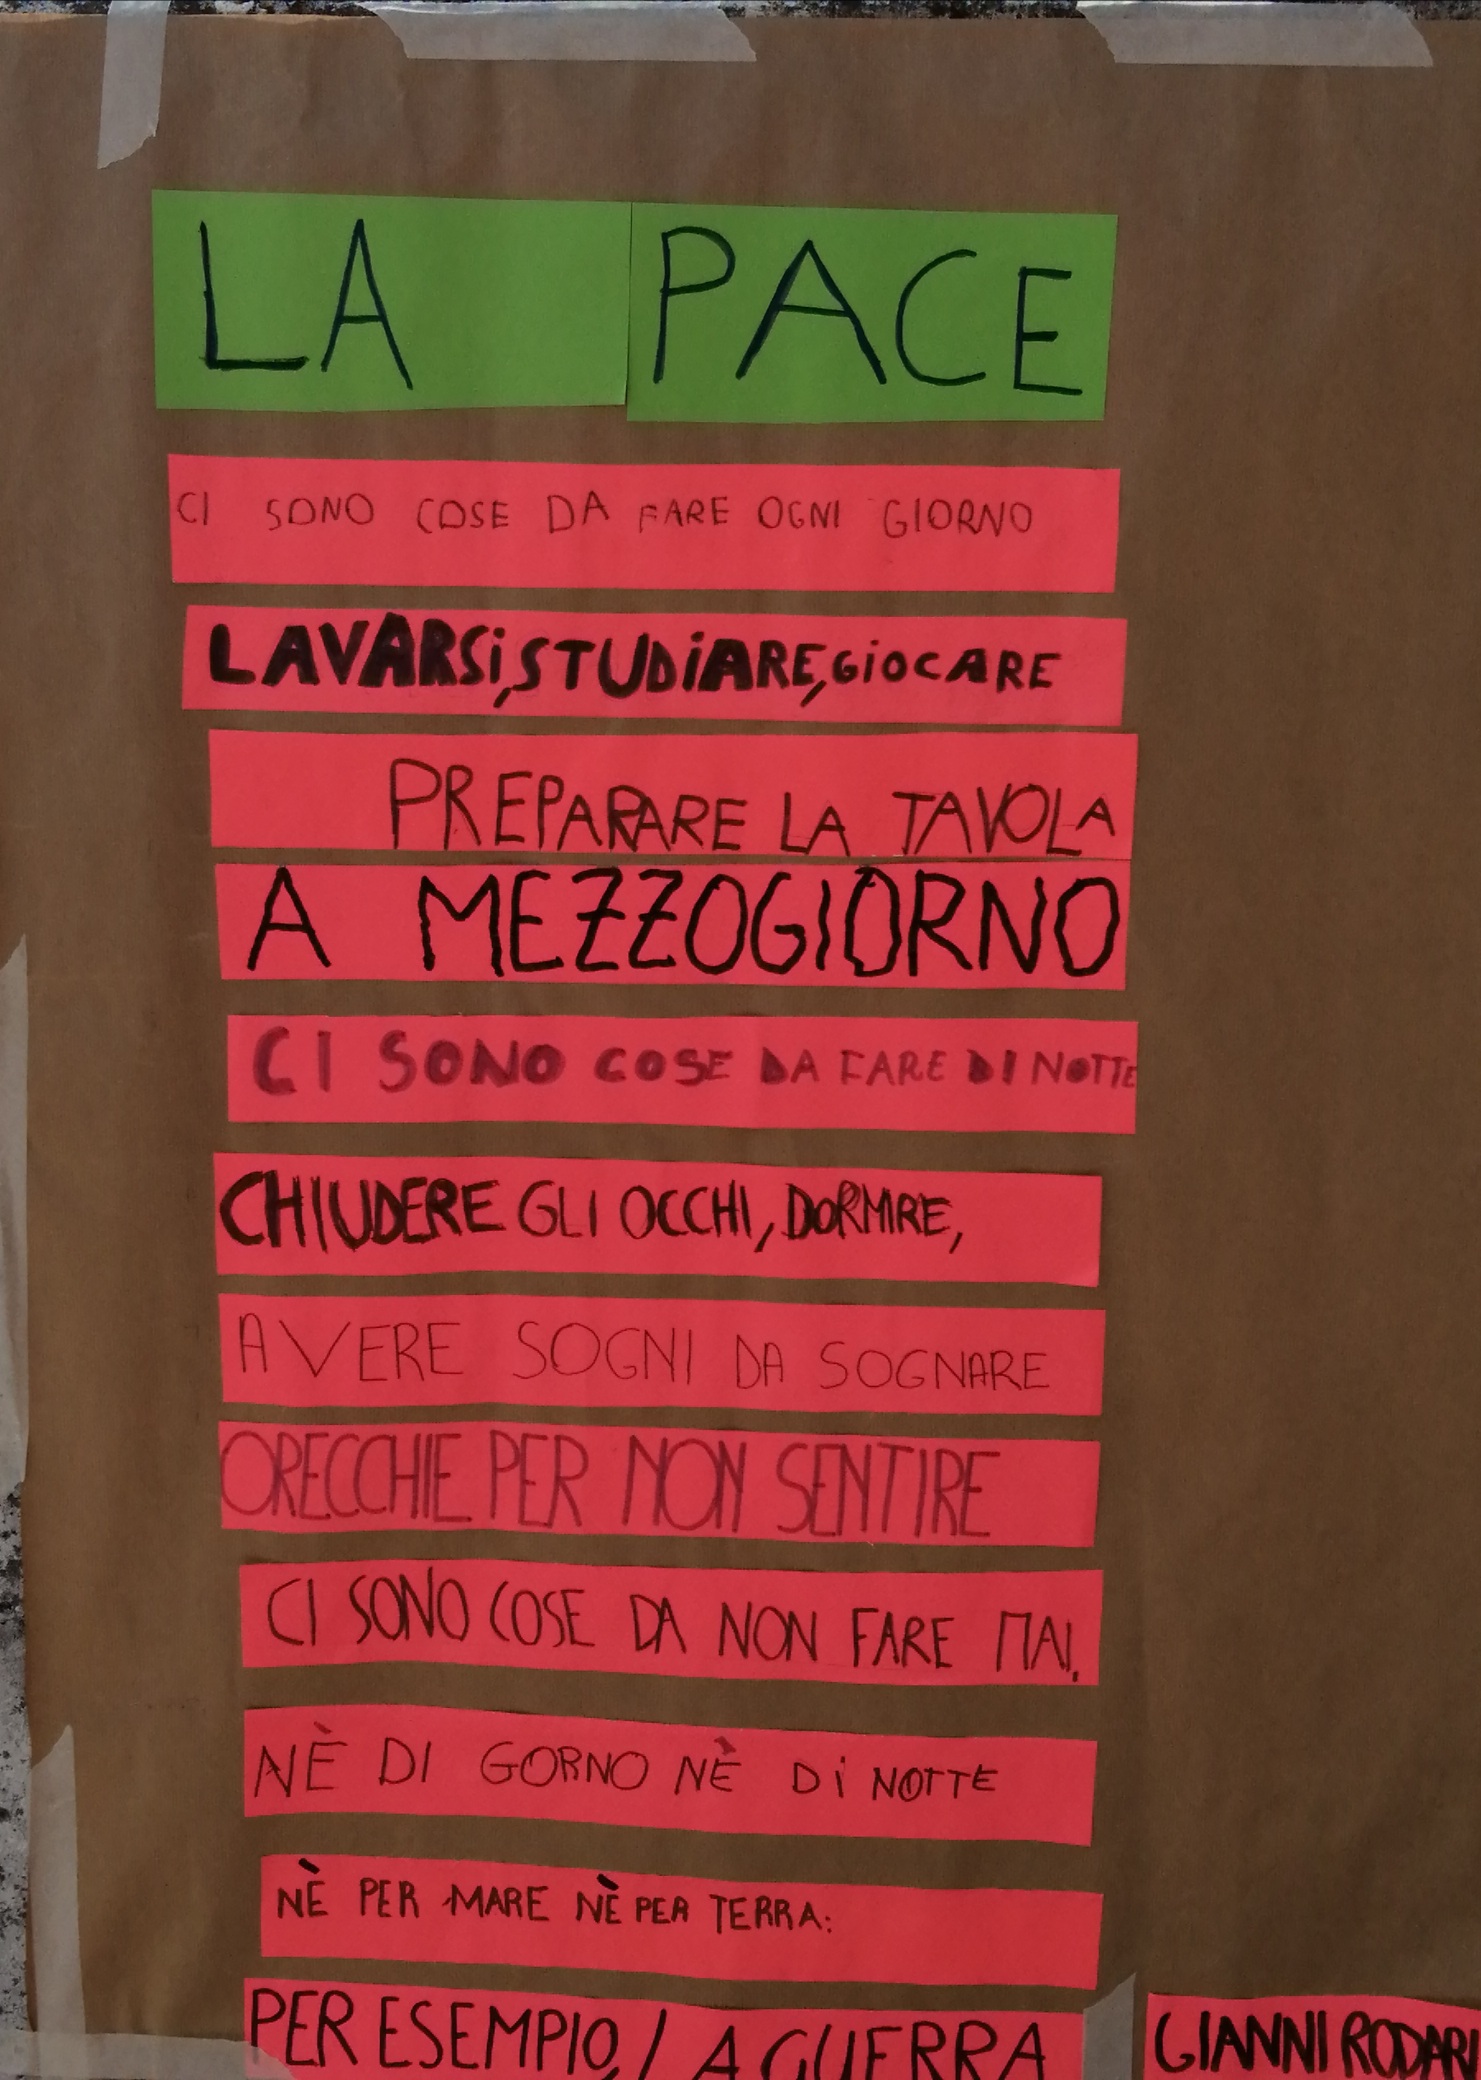 LA PACE
CI SONO COSE DA FARE OGNI GIORNO
LAVARSi, STUDiARE, GiOCARE
PREPARARE LA TAVOLA
A MEZZOGIORNO
CI SONO COSE DA FARE DI NOTTE
CHIUDERE GLI OCCHI, DORMIRE,
AVERE SOGNI DA SOGNARE
ORECCHIE PER NON SENTIRE
CI SONO COSE DA NON FARE MAI,
NÈ DI GORNO NÈ Di NOTTE
NÈ PER MARE NÈ PER TERRA:
PER ESEMPIO, LA GUERRA
GIANNI RODARI